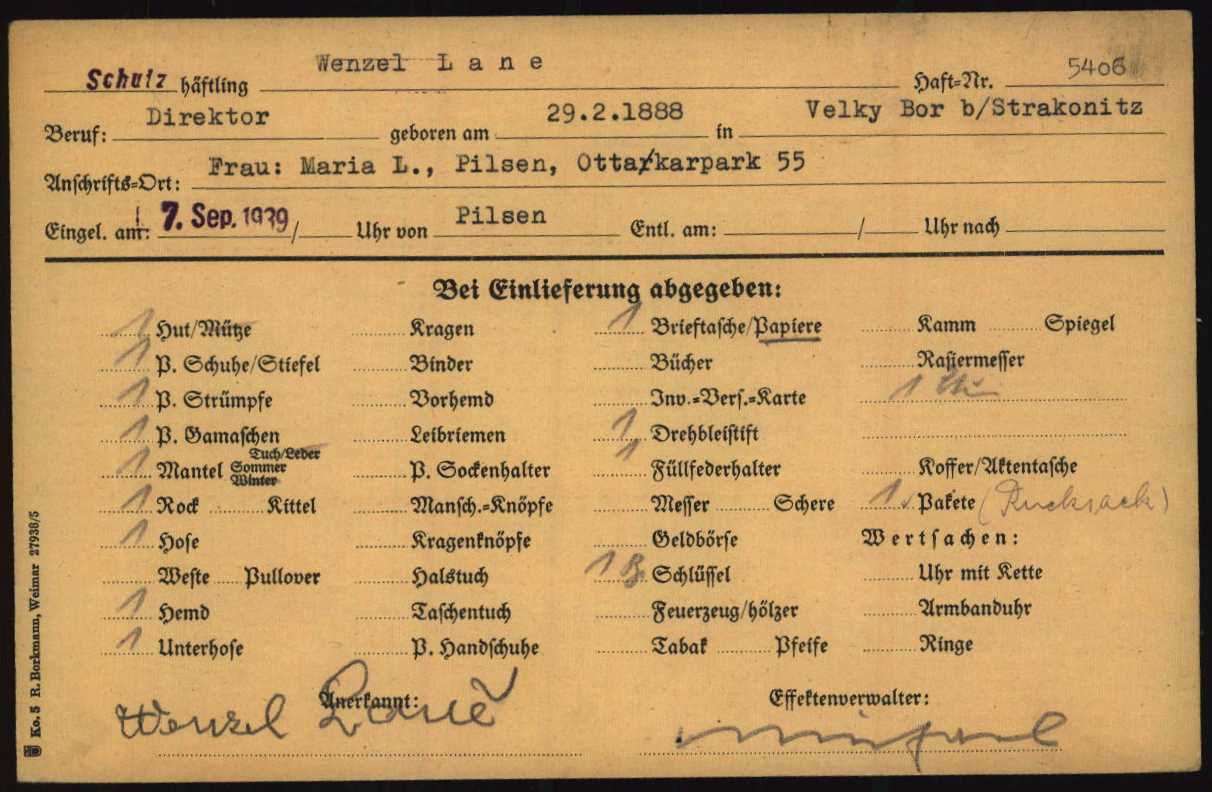 Wenzel Lane
Schutz häftling Haft-Nr. 5406
Beruf: Direktor geboren am 29.2.1888 in Velky Bor b/Strakonitz
Anschrifts-Ort: Frau: Maria L., Pilsen, Ottarkarpark 55
Eingel. am: 7. Sep. 1939 / Uhr von Pilsen Entl. am: / Uhr nach
Bei Einlieferung abgegeben:
1 Hut/Mütze Kragen 1 Brieftasche/Papiere Kamm Spiegel
1 P. Schuhe/Stiefel Binder Bücher Rasiermesser
1 P. Strümpfe Vorhemd Inv.-Vers.-Karte 1
1 P. Gamaschen Leibriemen 1 Drehbleistift
1 Mantel Tuch/Leder Sommer Winter P. Sockenhalter 1 Füllfederhalter Koffer/Aktentasche
1 Rock Kittel Mansch.-Knöpfe Messer Schere 1 Pakete (Rucksack)
1 Hose Kragenknöpfe Geldbörse Wertsachen:
Weste Pullover Halstuch 1 B Schlüssel Uhr mit Kette
1 Hemd Taschentuch Feuerzeug/hölzer Armbanduhr
1 Unterhose P. Handschuhe Tabak Pfeife Ringe
Anerkannt: Effektenverwalter:
Wenzel Laně
Ko. 5 R. Borkmann, Weimar 27938/5